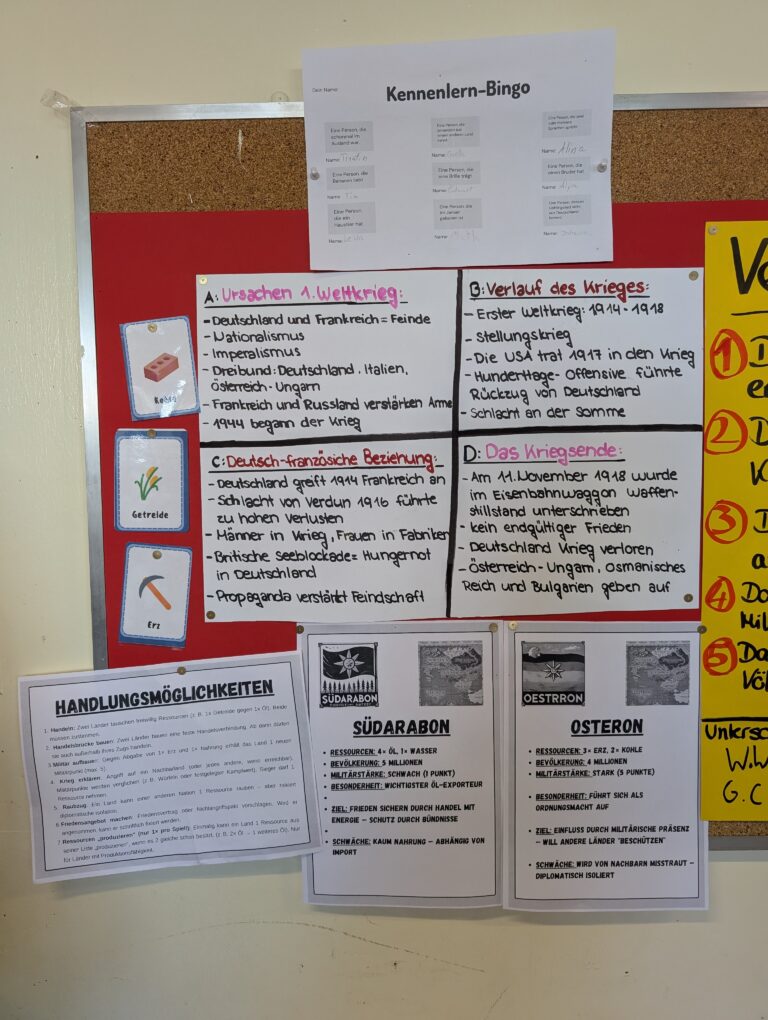 Dein Name:
Kennenlern-Bingo
Eine Person, die
schonmal im
Ausland war.
Name:
Eine Person, die
Name:
Eine Person, die
Sprachen spricht
Name: Alina
Eine Person, die
Bananen liebt
Name: Tim
Eine Person, die
eine Brille trägt
Name:
Eine Person, die
einen Bruder hat
Name:
Eine Person,
die ein
Haustier hat
Name:
Eine Person, die
im Januar
geboren ist
Name:
Name:
A: Ursachen 1. Weltkrieg:
- Deutschland und Frankreich = Feinde
- Nationalismus
- Imperalismus
- Dreibund: Deutschland, Italien,
Österreich-Ungarn
- Frankreich und Russland verstärken Arme
- 1944 begann der Krieg
B: Verlauf des Krieges:
- Erster Weltkrieg: 1914-1918
- Stellungskrieg
- Die USA trat 1917 in den Krieg
- Hunderttage-Offensive führte
Rückzug von Deutschland
- Schlacht an der Somme
C: Deutsch-französiche Beziehung:
- Deutschland greift 1914 Frankreich an
- Schlacht von Verdun 1916 führte
zu hohen Verlusten
- Männer in Krieg, Frauen in Fabriken
- Britische Seeblockade = Hungernot
in Deutschland
- Propaganda verstärkt Feindschaft
D: Das Kriegsende:
- Am 11. November 1918 wurde
im Eisenbahnwaggon Waffen-
stillstand unterschrieben
- kein endgültiger Frieden
- Deutschland Krieg verloren
- Österreich-Ungarn, Osmanisches
Reich und Bulgarien geben auf
Getreide
Erz
HANDLUNGSMÖGLICHKEITEN
1. Handeln: Zwei Länder tauschen freiwillig Ressourcen (z. B. 1x Getreide gegen 1x Öl). Beide
müssen zustimmen.
2. Handelsbrücke bauen: Zwei Länder bauen eine feste Handelsverbindung. Ab dann dürfen
sie auch außerhalb ihres Zugs handeln.
3 Militär aufbauen: Gegen Abgabe von 1x Erz und 1x Nahrung erhält das Land 1 neuen
Militärpunkt (max. 5).
4. Krieg erklären: Angriff auf ein Nachbarland (oder jedes andere, wenn erreichbar).
Militärpunkte werden verglichen (z. B. Würfeln oder festgelegter Kampfwert). Sieger darf 1
Ressource nehmen.
5. Raubzug: Ein Land kann einer anderen Nation 1 Ressource rauben – aber riskiert
diplomatische Isolation.
6 Friedensangebot machen: Friedensvertrag oder Nichtangriffspakt vorschlagen. Wird er
angenommen, kann er schriftlich fixiert werden.
7 Ressourcen „produzieren“ (nur 1x pro Spiel): Einmalig kann ein Land 1 Ressource aus
seiner Liste „produzieren“, wenn es 2 gleiche schon besitzt. (z. B. 2x Öl → 1 weiteres Öl). Nur
für Länder mit Produktionsfähigkeit.
SÜDARABON
SÜDARABON
RESSOURCEN: 4× ÖL, 1× WASSER
BEVÖLKERUNG: 5 MILLIONEN
MILITÄRSTÄRKE: SCHWACH (1 PUNKT)
BESONDERHEIT: WICHTIGSTER ÖL-EXPORTEUR
ZIEL: FRIEDEN SICHERN DURCH HANDEL MIT
ENERGIE – SCHUTZ DURCH BÜNDNISSE
SCHWÄCHE: KAUM NAHRUNG – ABHÄNGIG VON
IMPORT
OESTRRON
OSTERON
RESSOURCEN: 3× ERZ, 2× KOHLE
BEVÖLKERUNG: 4 MILLIONEN
MILITÄRSTÄRKE: STARK (3 PUNKTE)
BESONDERHEIT: FÜHRT SICH ALS
ORDNUNGSMACHT AUF
ZIEL: EINFLUSS DURCH MILITÄRISCHE PRÄSENZ
– WILL ANDERE LÄNDER "BESCHÜTZEN"
SCHWÄCHE: WIRD VON NACHBARN MISSTRAUT –
DIPLOMATISCH ISOLIERT
Ve
1 D
2 D
3 D
4 Da
Mil
5 Da
Völ
Untersc
W.W
G.C